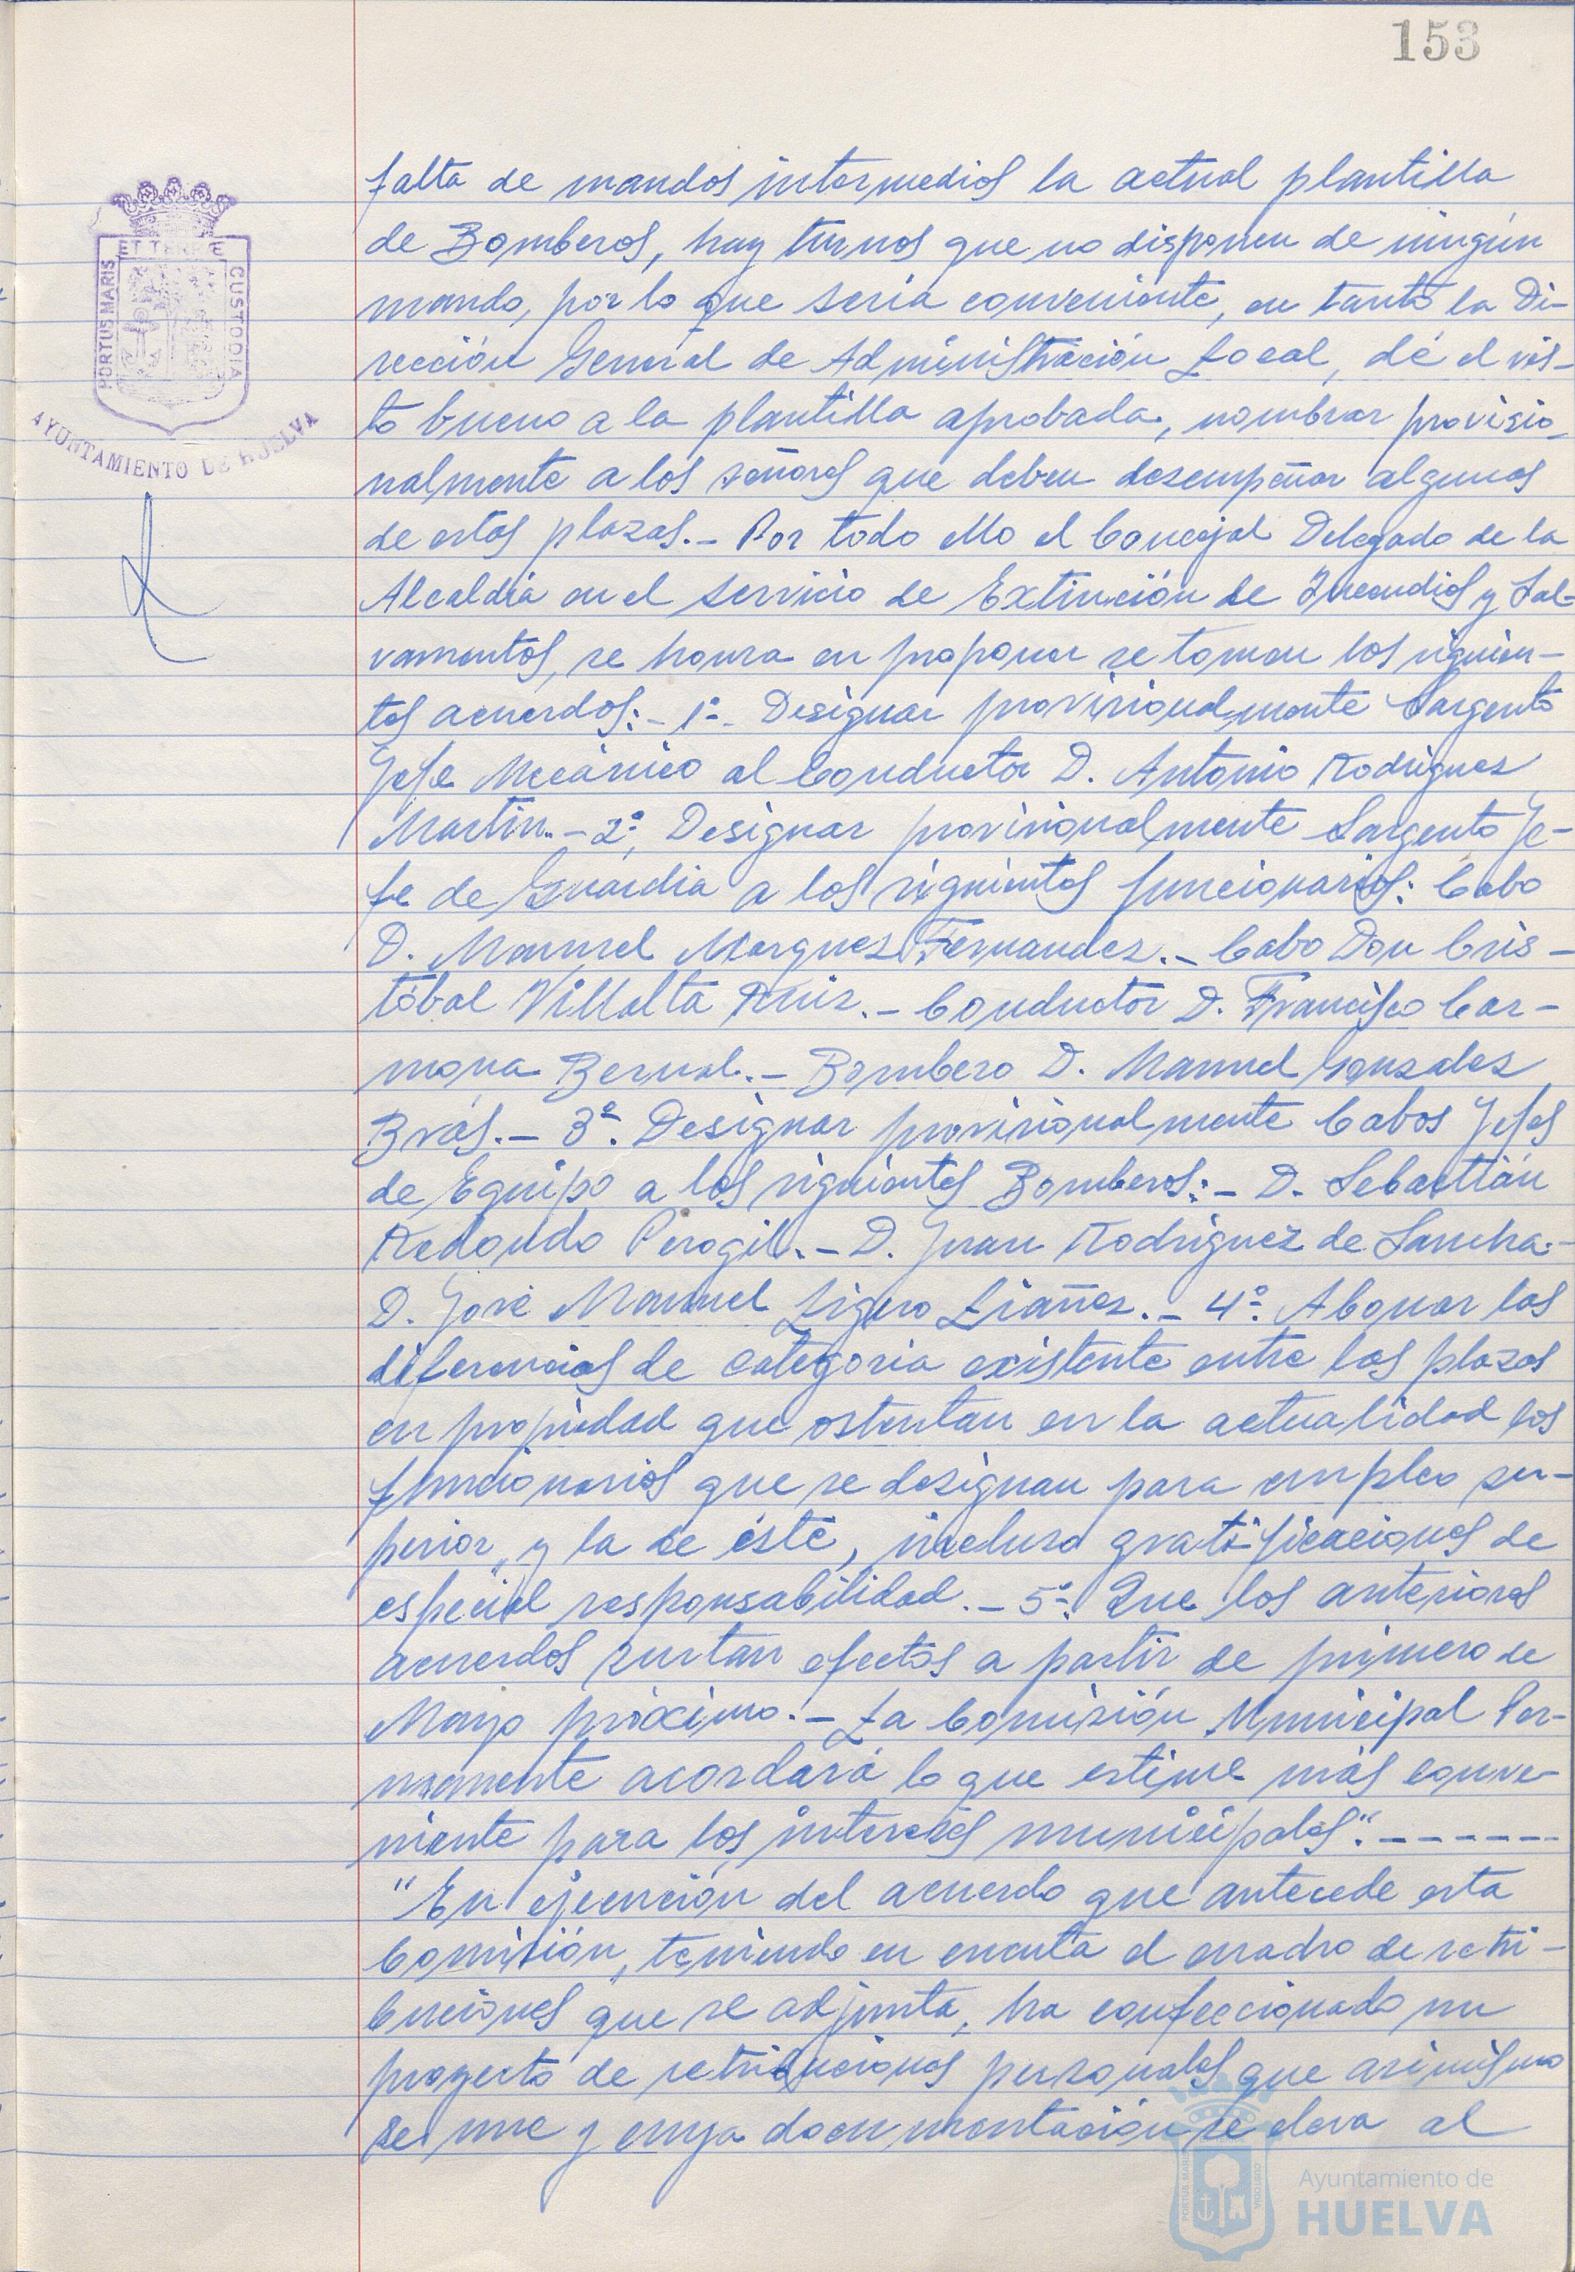 153
ET TERRE
PORTUS MARIS
CUSTODIA
AYUNTAMIENTO DE HUELVA
falta de mandos intermedios la actual plantilla
de Bomberos, hay turnos que no disponen de ningún
mando, por lo que seria conveniente, en tanto la Di-
rección General de Administración Local, dé el vis-
to bueno a la plantilla aprobada, nombrar provisio-
nalmente a los señores que deben desempeñar algunas
de estas plazas.- Por todo ello el Concejal Delegado de la
Alcaldía en el servicio de Extinción de Incendios y Sal-
vamentos, se honra en proponer se tomen los siguien-
tes acuerdos:- 1º- Designar provisionalmente Sargento
Jefe Mecánico al Conductor D. Antonio Rodriguez
Martin.- 2º, Designar provisionalmente Sargento Je-
fe de Guardia a los siguientes funcionarios: Cabo
D. Manuel Marquez Fernandez.- Cabo Don Cris-
tóbal Villalta Ruiz.- Conductor D. Francisco Car-
mona Bernal.- Bombero D. Manuel Gonzalez
Brás.- 3º. Designar provisionalmente Cabos Jefes
de Equipo a los siguientes Bomberos:- D. Sebastián
Redondo Perogil.- D. Juan Rodriguez de Sancha.-
D. José Manuel Ligero Liañez.- 4º. Abonar las
diferencias de categoria existente entre las plazas
en propiedad que ostentan en la actualidad los
funcionarios que se designan para empleo su-
perior, y la de éste, incluso gratificaciones de
especial responsabilidad.- 5º. Que los anteriores
acuerdos surtan efectos a partir de primero de
Mayo próximo.- La Comisión Municipal Per-
manente acordará lo que estime más conve-
niente para los intereses municipales".------
"En ejecución del acuerdo que antecede esta
Comisión, teniendo en cuenta el cuadro de retri-
buciones que se adjunta, ha confeccionado un
proyecto de retribuciones personales que asimismo
se une y cuya documentación se eleva al
Ayuntamiento de
HUELVA